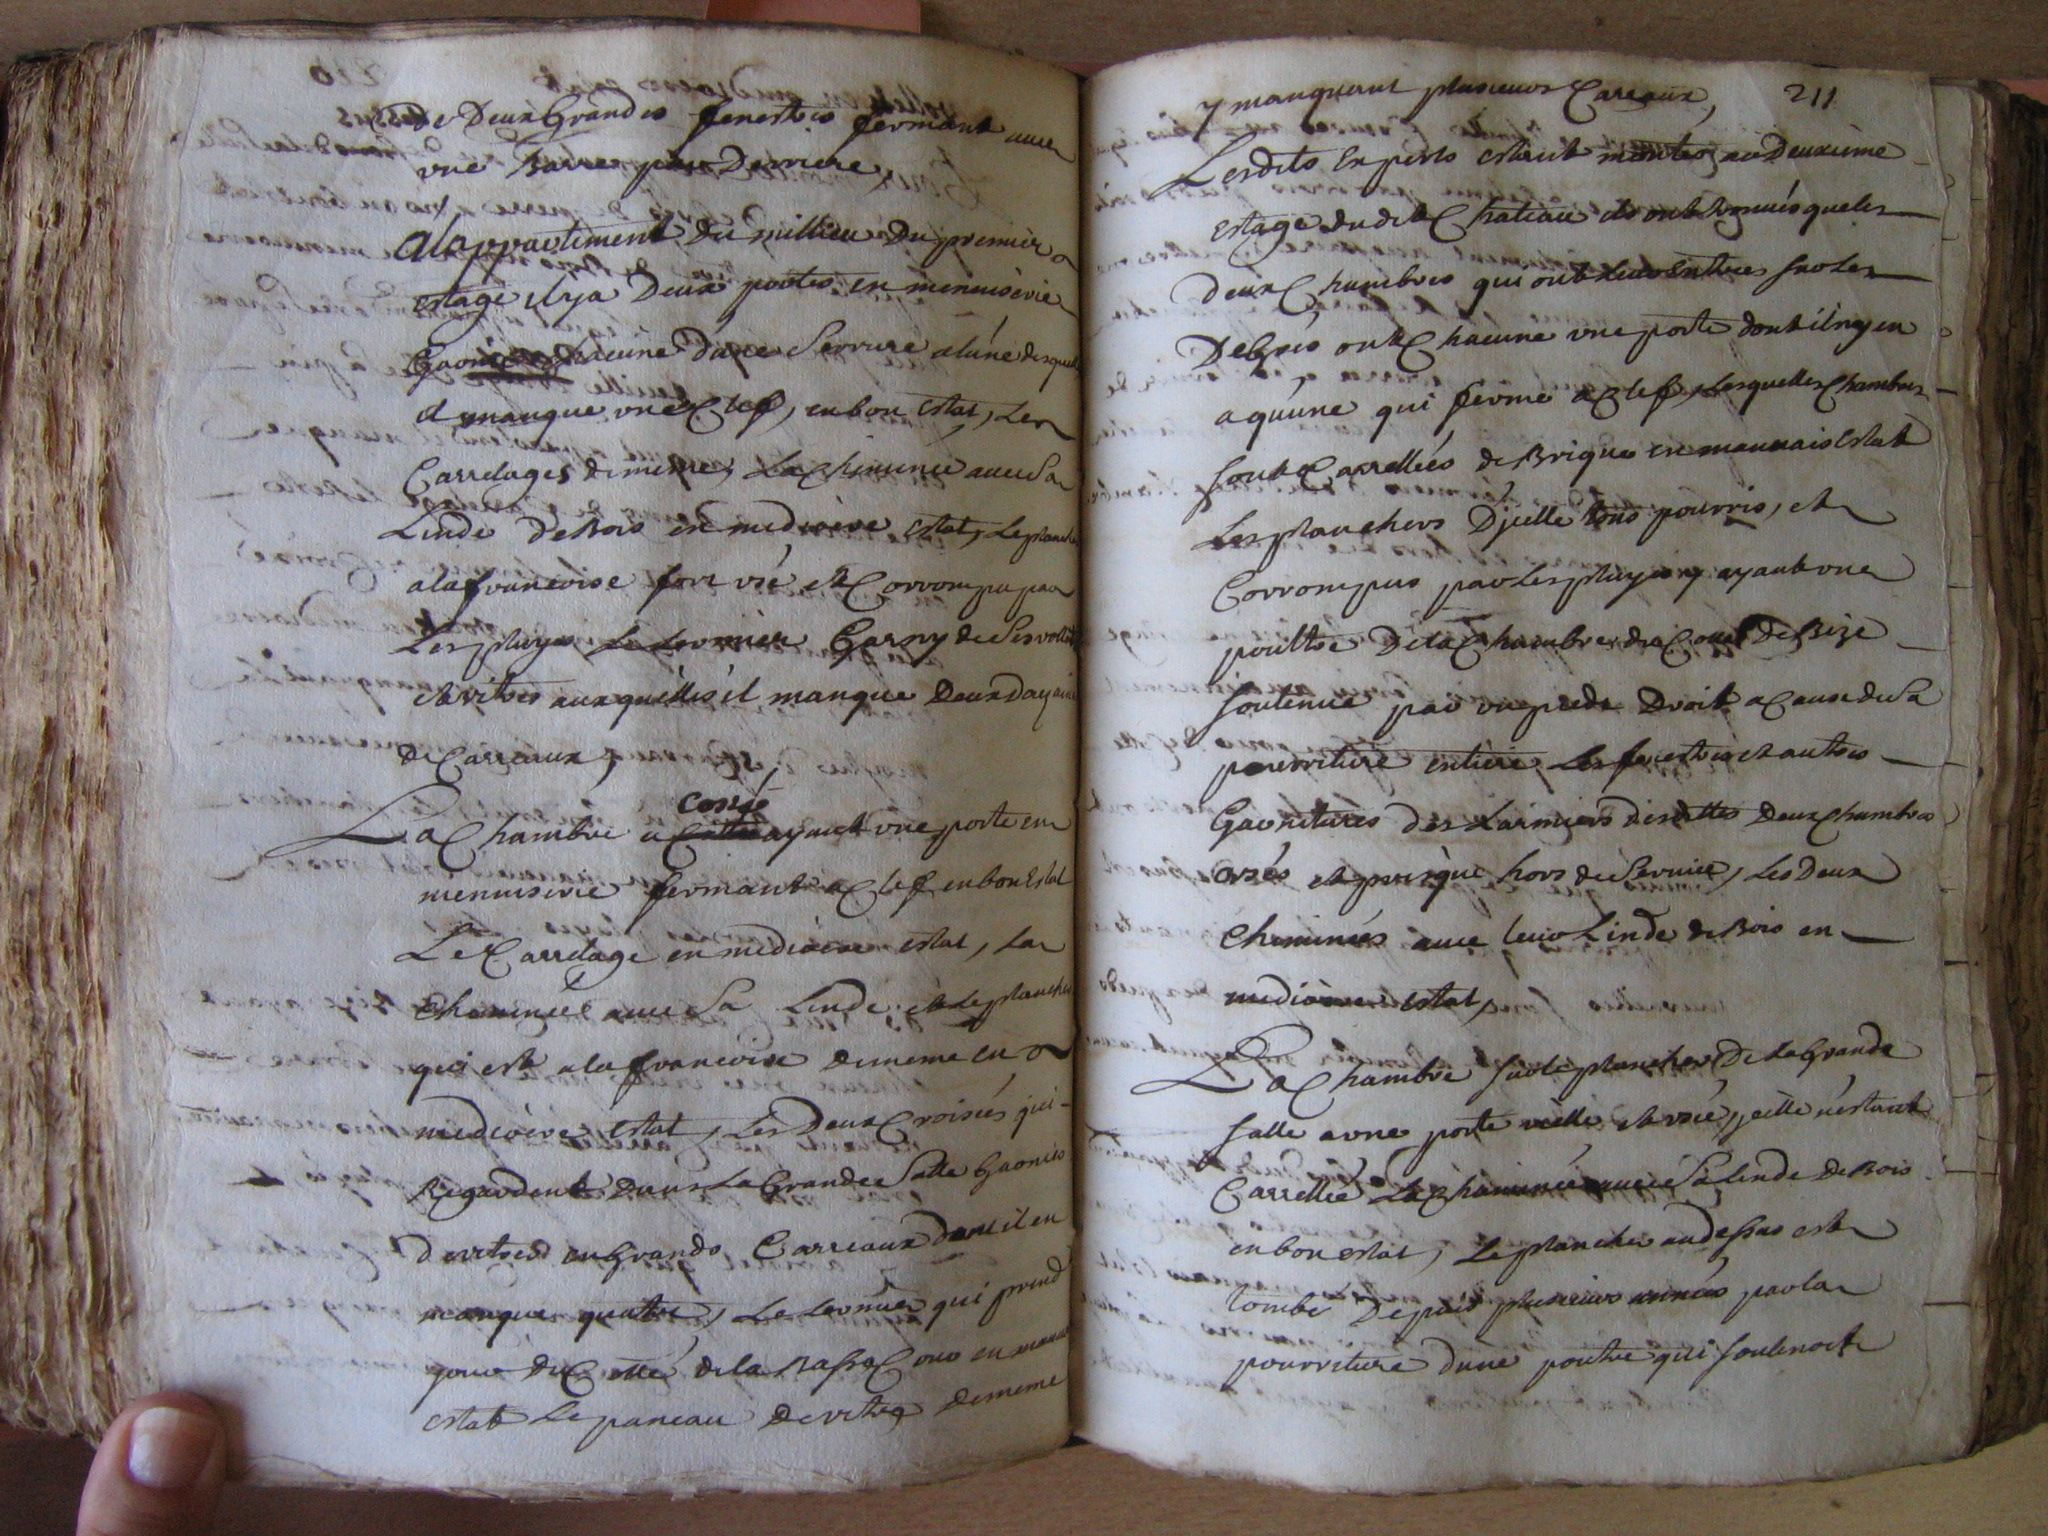 de Deux Grandes fenestres fermant avec
une Barre par Derriere,
A lappartement du millieu du premier
estage il y a Deux portes en menuiserie
Garnie chacune d'une Serrure a lune desquelles
il manque une Clef, en bon estat, Les
Carrelages de meme, La cheminée avec Sa
Linde de Bois en mediocre estat, Le plancher
a la francoise fort usé et Corrompu par
Les pluyes Le Larmier Garny de Ses vollets
et vitres auxquelles il manque Deux douzaines
de Carreaux,
La Chambre a costé ayant une porte en
menuiserie fermant a Clef en bon Estat
Le Carrelage en mediocre estat, La
Cheminée avec Sa Linde et Le plancher
qui est a la francoise de meme en
mediocre estat, Les Deux Croisées qui
Regardent Dans La Grande Salle Garnies
de vitres en Grands Carreaux dont il en
manque quatre, Le Larmier qui prend
jour du Costé de la Basse Cour en mauvais
estat Le paneau de vitre de meme
y manquant plusieurs Carreaux, 211
Lesdits Experts estant montes au Deuxième
estage dudit Chateau ils ont trouvés que les
deux Chambres qui ont leur Entrées sur Les
Degrés ont Chacune une porte dont il ny en
a qu'une qui ferme a Clef, Lesquelles Chambres
sont Carrellées de Brique en mauvais Estat
Les planchers D'jcelle tous pourris, et
Corrompus par Les pluyes y ayant une
poultre De la Chambre du Costé de Bize
soutenue par un pied Droit a Cause de Sa
pourriture entiere Les fenestres et autres
Garnitures des Larmiers desdittes Deux Chambres
usés et presque hors de Service, Les Deux
Cheminées avec leur Linde de Bois en
mediocre estat,
La Chambre sur le plancher De la Grande
salle a une porte vielle et usée, jcelle n'estant
Carrellée La Cheminée avec Sa Linde De Bois
en bon estat, Le plancher au dessus est
tombé Depuis plusieurs années par la
pourriture d'une poutre qui soutenoit